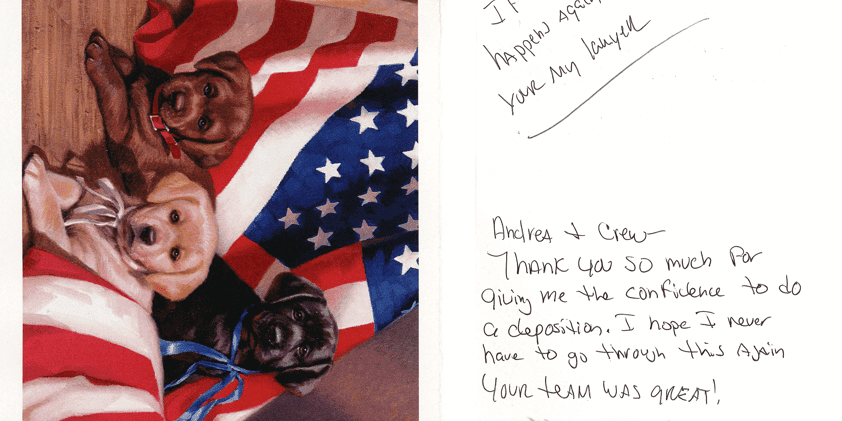 If
happens again
your my lawyer
Andrea + Crew-
Thank you so much for
giving me the confidence to do
a deposition. I hope I never
have to go through this again
YOUR TEAM WAS GREAT!